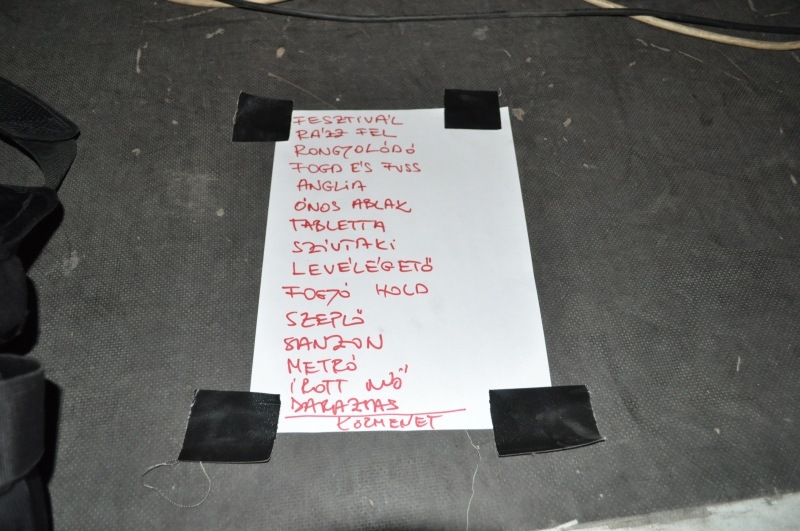 FESZTIVÁL
RÁZZ FEL
RONGYOLÓDÓ
FOGD ÉS FUSS
ANGLIA
ÓNOS ABLAK
TABLETTA
SZÍVTAKI
LEVÉLÉGETŐ
FOGYÓ HOLD
SZEPLŐ
SANZON
METRÓ
ÍROTT NŐ
DARAZTAS
KÖRMENET